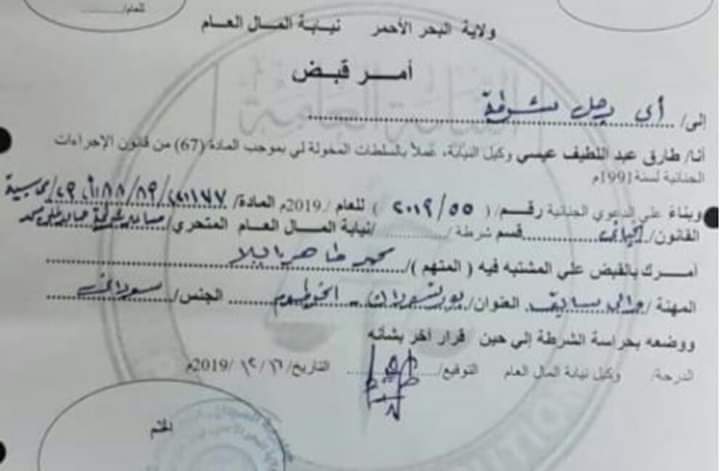 للعام/
ولاية البحر الأحمر نيابة المال العام
أمر قبض
إلى/ أي رجل شرطة
أنا/ طارق عبد اللطيف عيسى وكيل النيابة، عملاً بالسلطات المخولة لي بموجب المادة (67) من قانون الإجراءات
الجنائية لسنة 1991م
وبناءً على الدعوى الجنائية رقم/ ( ٢٠١٩/٥٥ ) للعام /2019م المادة/ ١٧٧/٢١/٨٩/٨٨/
القانون/ قسم شرطة / نيابة المال العام المتحري/
آمرك بالقبض علي المشتبه فيه ( المتهم )/ محمد طاهر ايلا
المهنة / والي سابق العنوان/ بورتسودان - الخرطوم الجنس/ سوداني
ووضعه بحراسة الشرطة إلي حين قرار آخر بشأنه
الدرجة/ وكيل نيابة المال العام التوقيع/ التاريخ/ ١٦/ ١٢/ 2019م
الختم